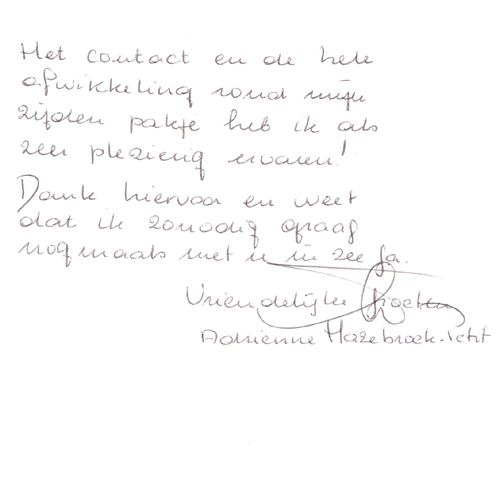 Het contact en de hele
afwikkeling rond mijn
zijden pakje heb ik als
zeer plezierig ervaren!
Dank hiervoor en weet
dat ik zonodig graag
nogmaals met u in zee ga.
Vriendelijke groeten
Adrienne Hazebroek-